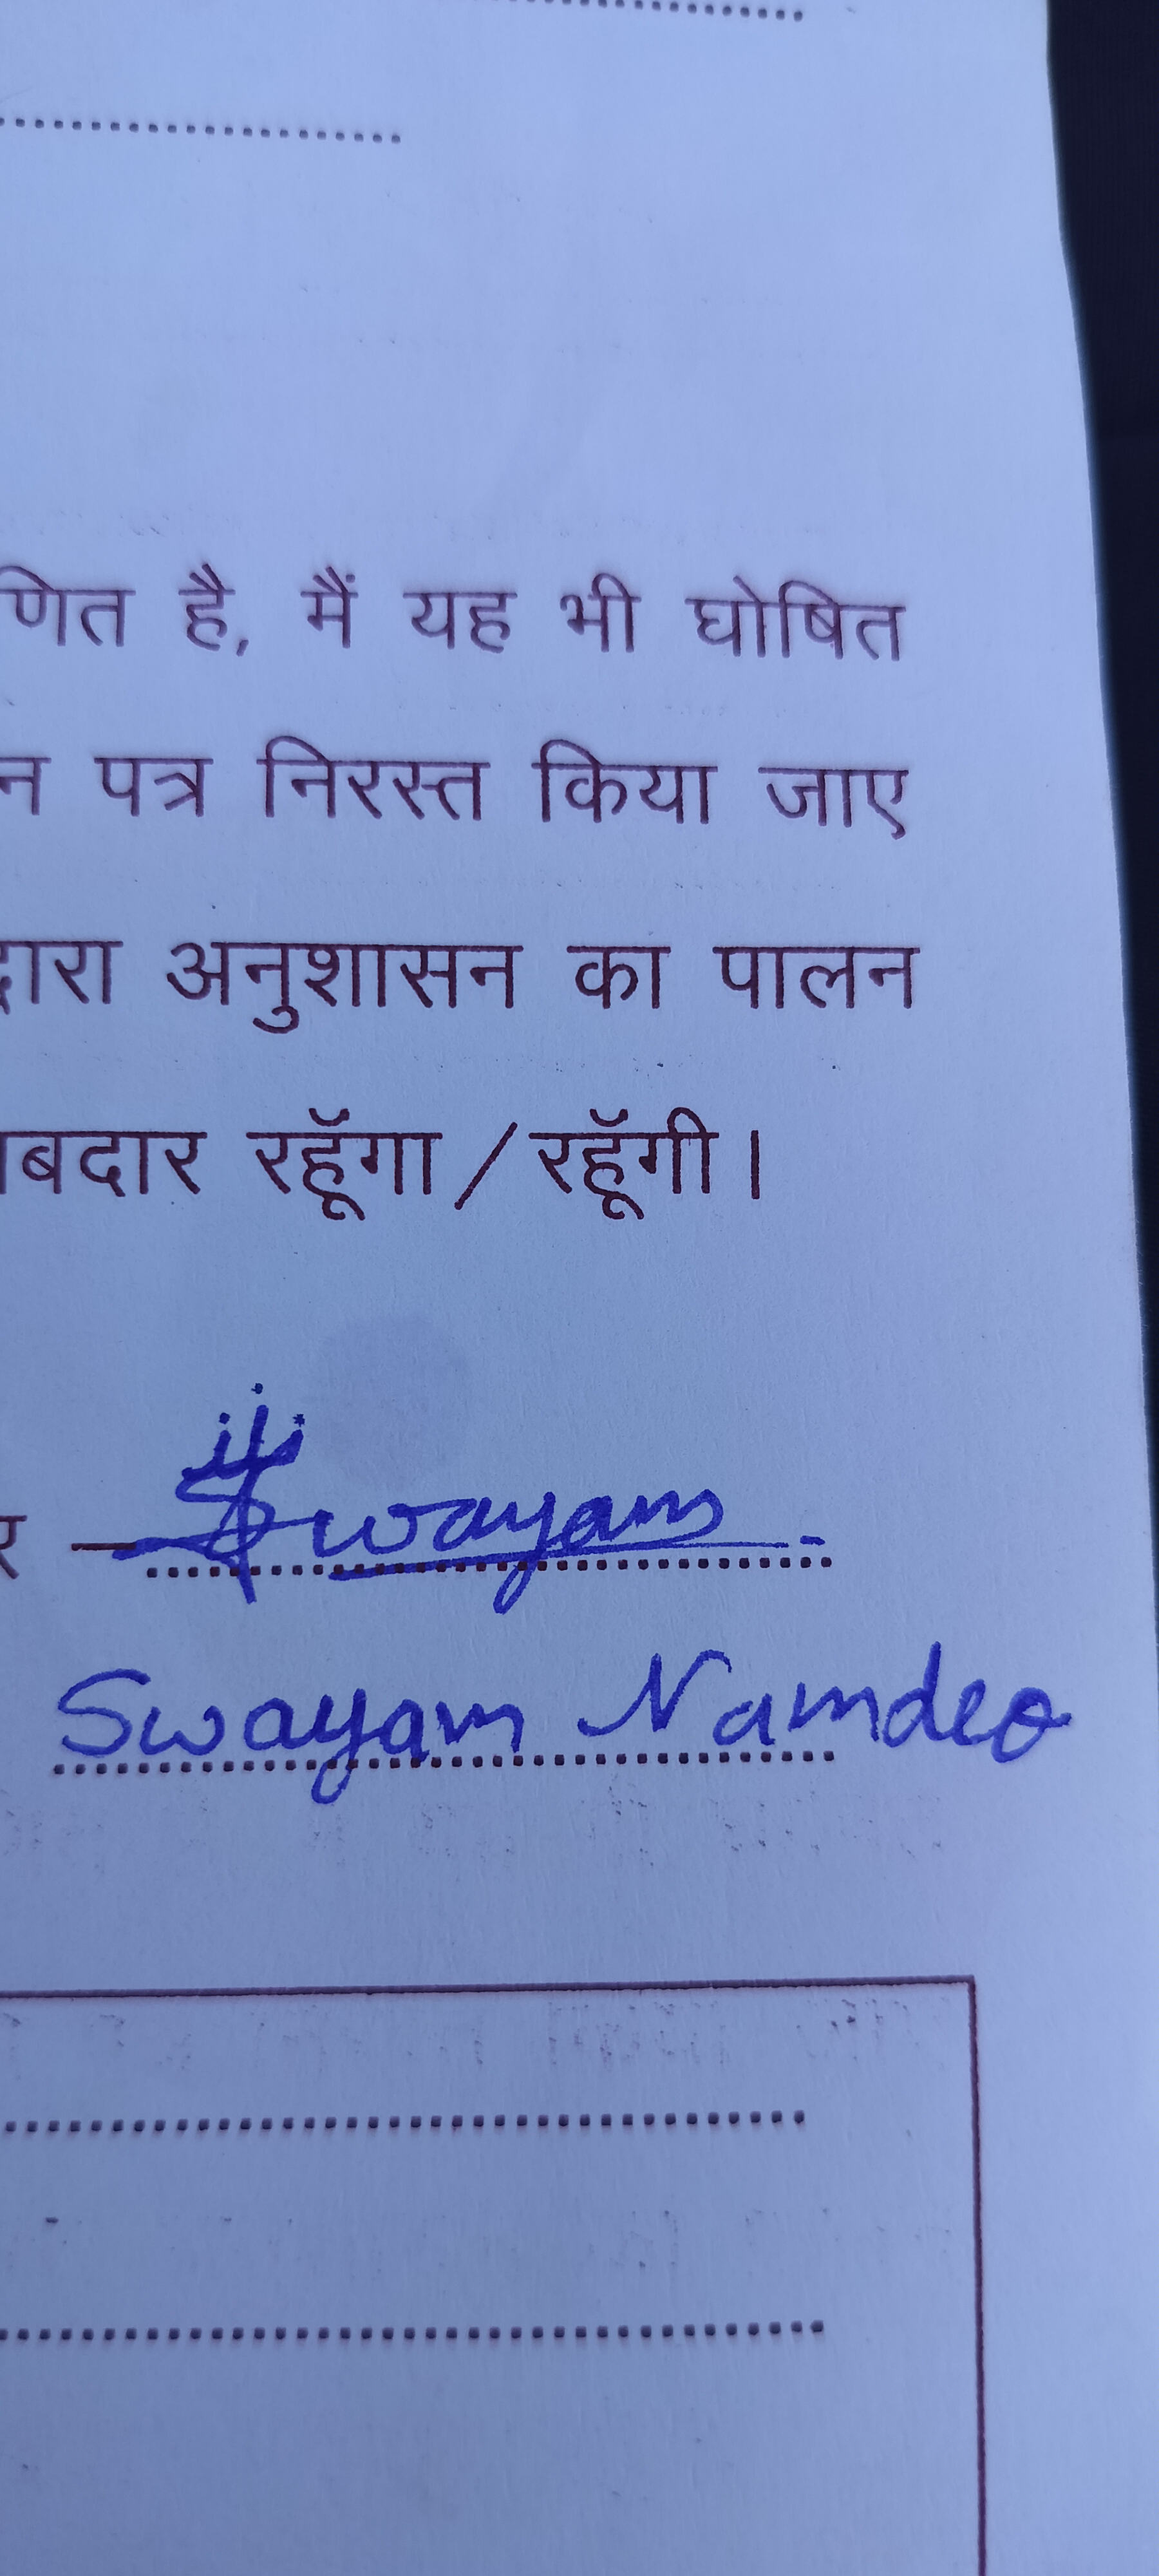 णित है, मैं यह भी घोषित
न पत्र निरस्त किया जाए
द्वारा अनुशासन का पालन
ाबदार रहूॅगा/रहूॅगी।
र Swayam
Swayam Namdeo